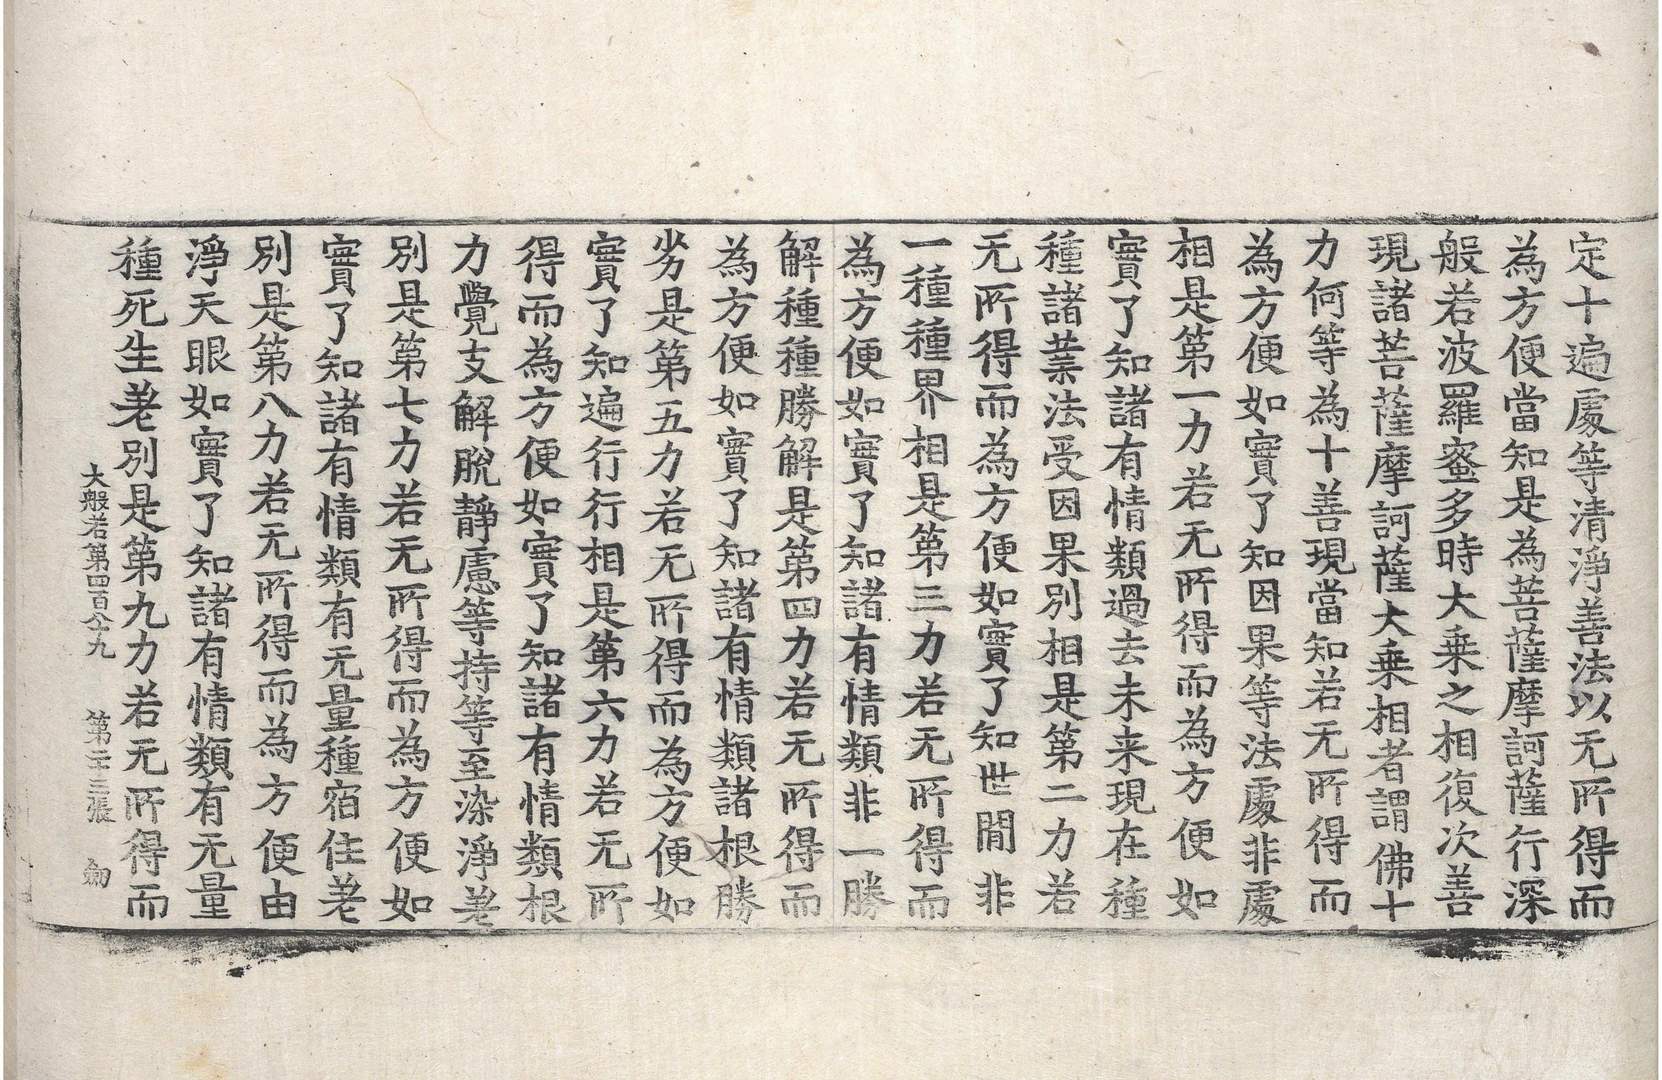 定十遍處等清淨善法以无所得而
為方便當知是為菩薩摩訶薩行深
般若波羅蜜多時大乗之相復次善
現諸菩薩摩訶薩大乗相者謂佛十
力何等為十善現當知若无所得而
為方便如實了知因果等法處非處
相是第一力若无所得而為方便如
實了知諸有情類過去未来現在種
種諸業法受因果別相是第二力若
无所得而為方便如實了知世間非
一種種界相是第三力若无所得而
為方便如實了知諸有情類非一勝
解種種勝解是第四力若无所得而
為方便如實了知諸有情類諸根勝
劣是第五力若无所得而為方便如
實了知遍行行相是第六力若无所
得而為方便如實了知諸有情類根
力覺支解脫靜慮等持等至染淨差
別是第七力若无所得而為方便如
實了知諸有情類有无量種宿住差
別是第八力若无所得而為方便由
淨天眼如實了知諸有情類有无量
種死生差別是第九力若无所得而
大般若第四百八十九 第二十三張 劒